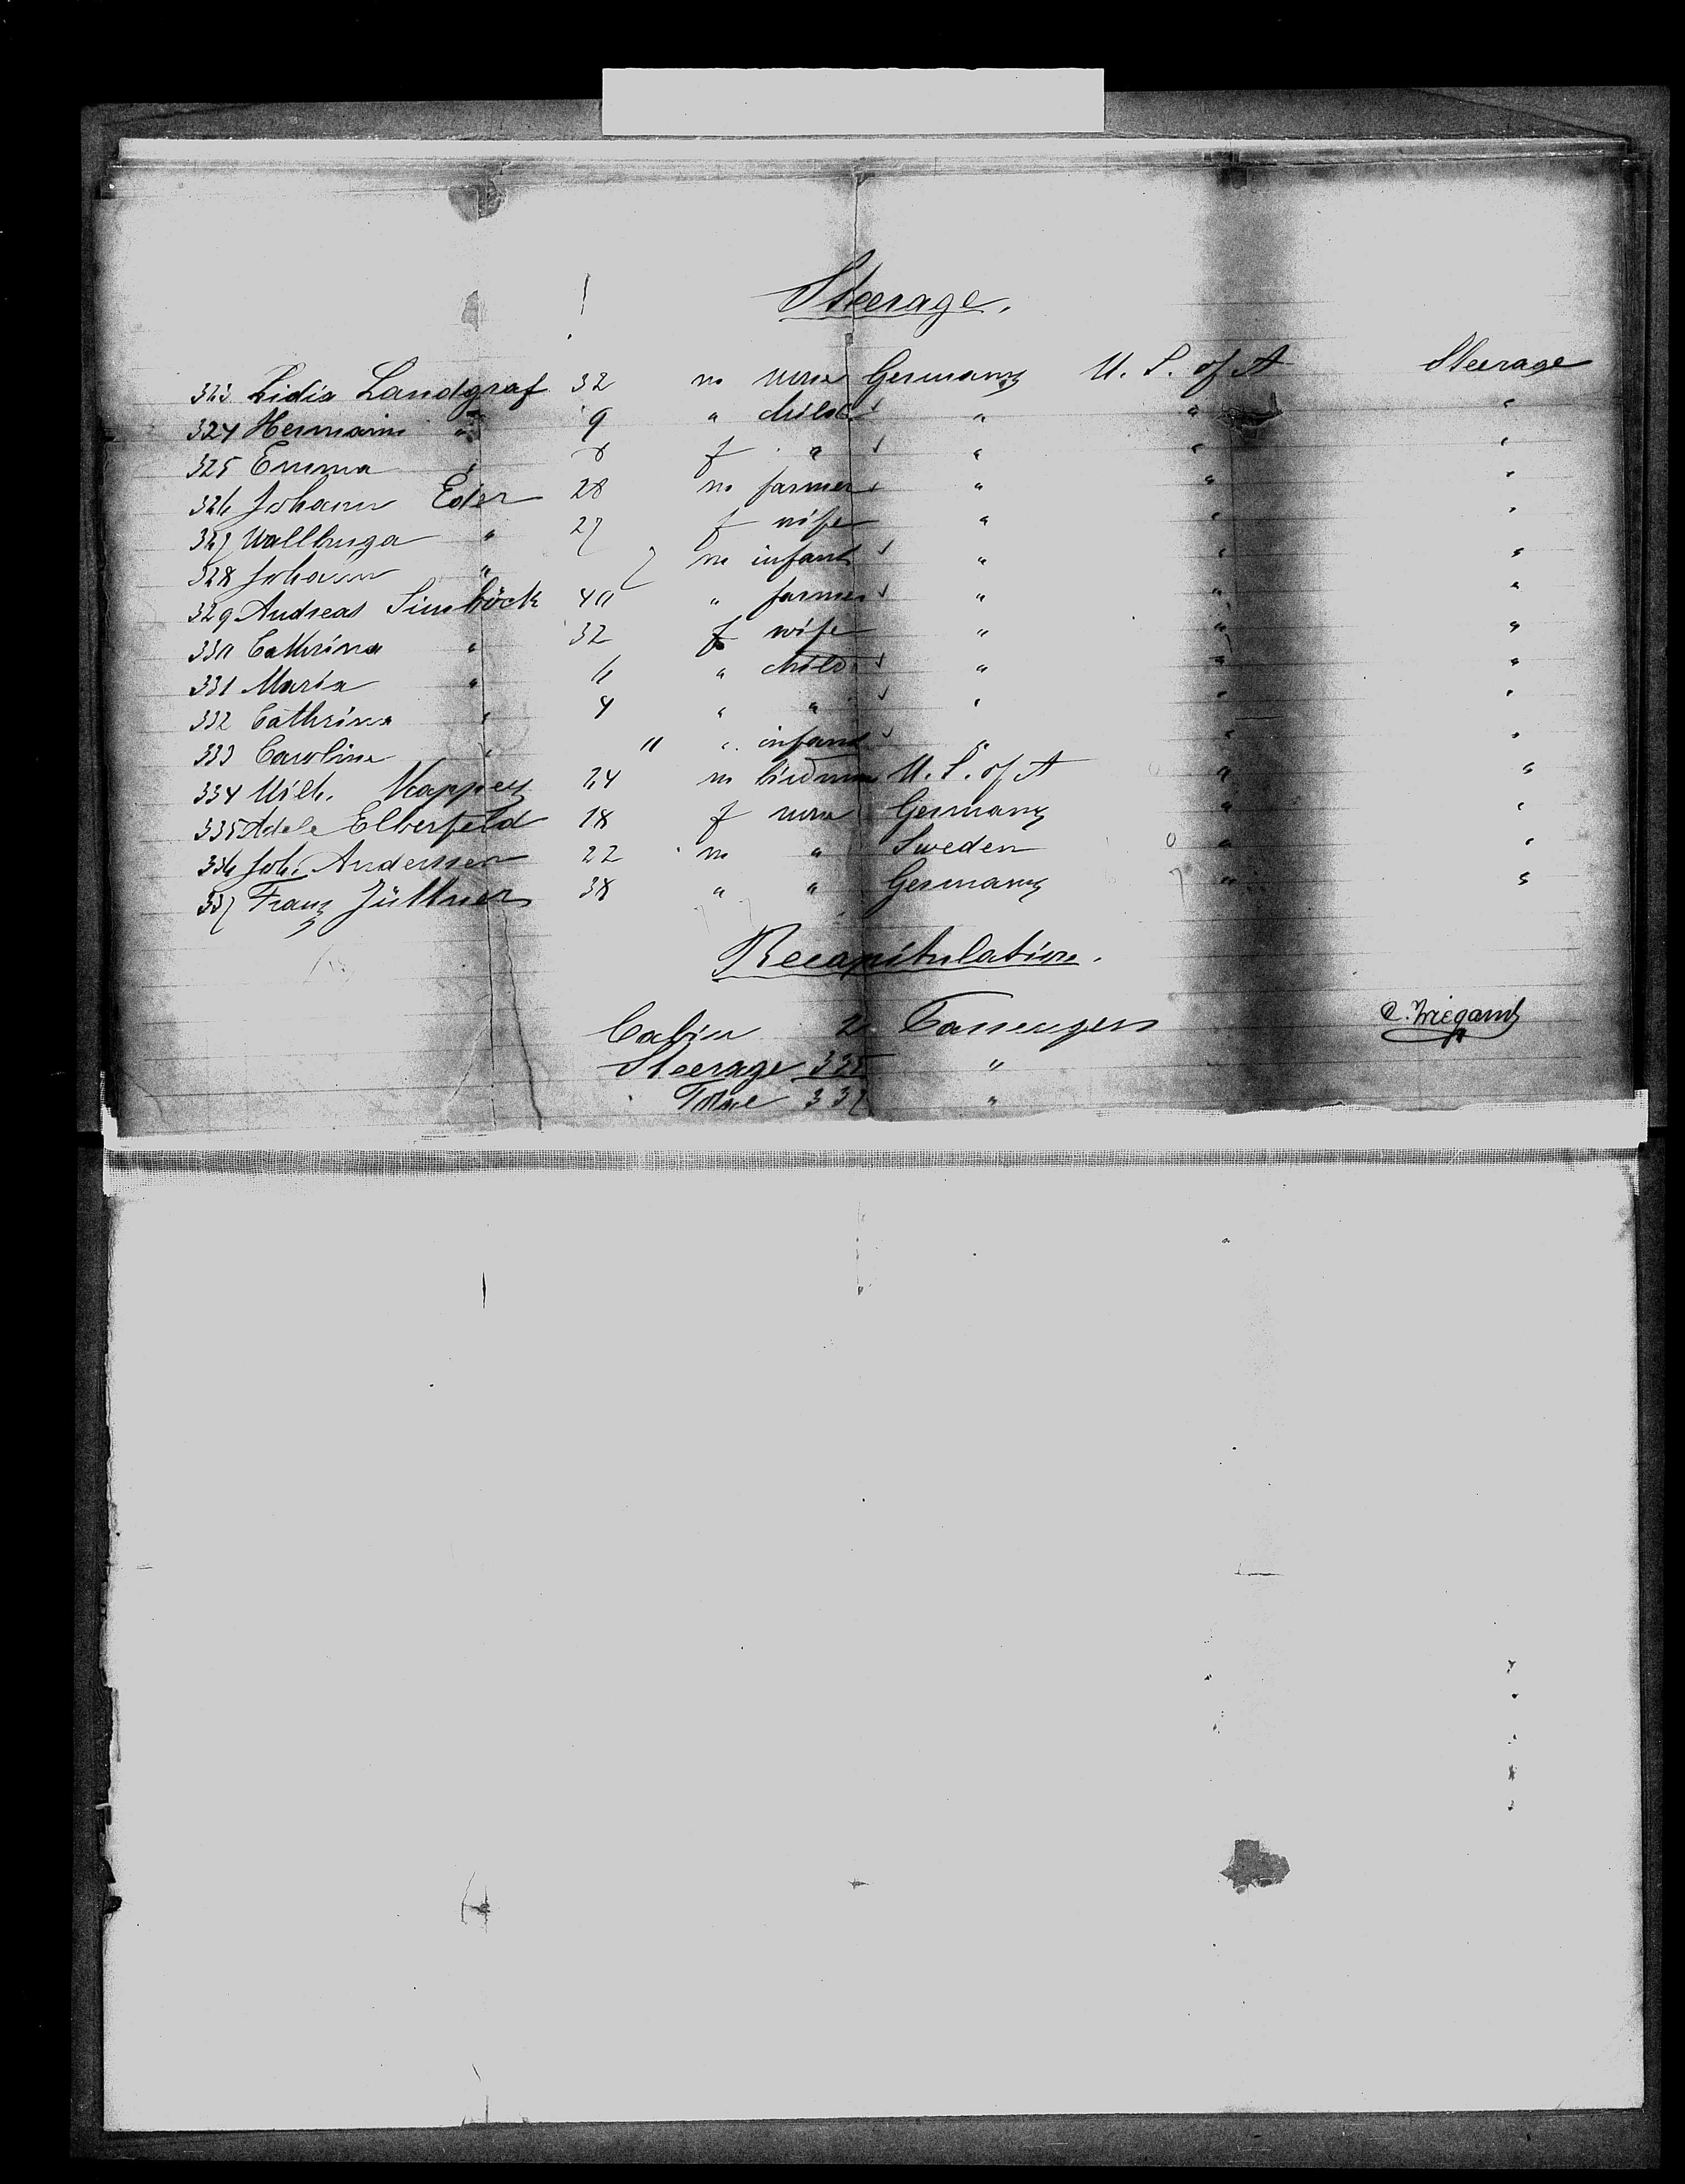 Steerage.
323 Lidia Landgraf 32 m none Germany U. S. of A Steerage
324 Hermann " 9 " child " " "
325 Emma " 8 f " " " "
326 Johann Eder 28 m farmer " " "
327 Wallburga " 27 f wife " " "
328 Johann " 7 m infant " " "
329 Andreas Simböck 40 " farmer " " "
330 Cathrina " 32 f wife " " "
331 Maria " 6 " child " " "
332 Cathrina " 4 " " " " "
333 Caroline " 11 " infant " " "
334 Wilh. 24 m U. S. of A " "
335 Adele Elberfeld 18 f none Germany " "
336 Joh. Anderssen 22 m " Sweden " "
337 Franz Jüttner 38 " " Germany " "
Recapitulation.
Cabin 2 Passengers
C. Wiegand
Steerage 335 "
Total 337 "